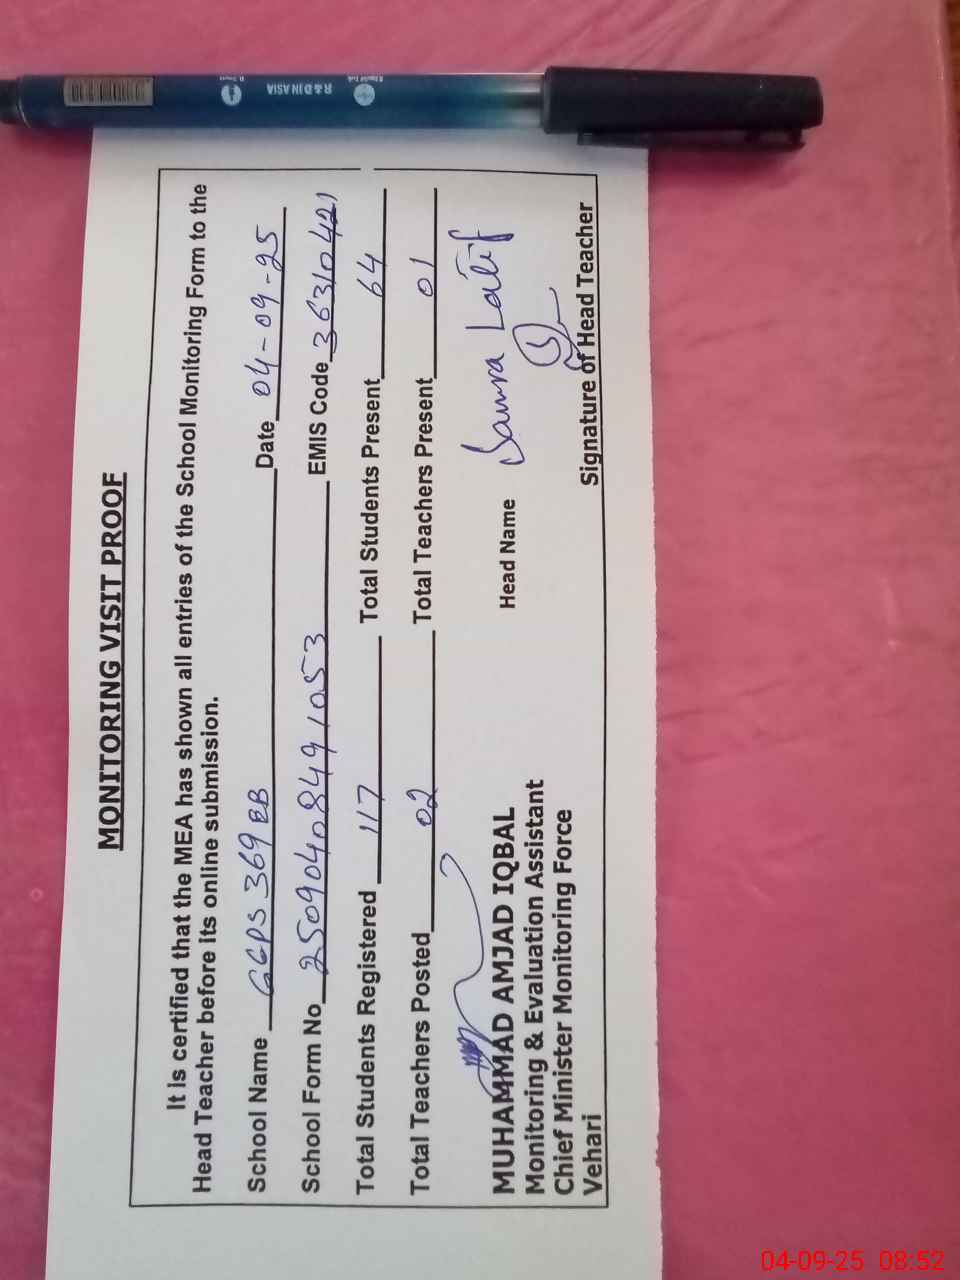 MONITORING VISIT PROOF
It is certified that the MEA has shown all entries of the School Monitoring Form to the
Head Teacher before its online submission.
School Name GGPS 369 EB Date 04-09-25
School Form No 25090408491053 EMIS Code 36310421
Total Students Registered 117 Total Students Present 64
Total Teachers Posted 02 Total Teachers Present 01
Head Name Samra Latif
MUHAMMAD AMJAD IQBAL
Monitoring & Evaluation Assistant
Chief Minister Monitoring Force
Vehari
Signature of Head Teacher
R & D IN ASIA
04-09-25 08:52